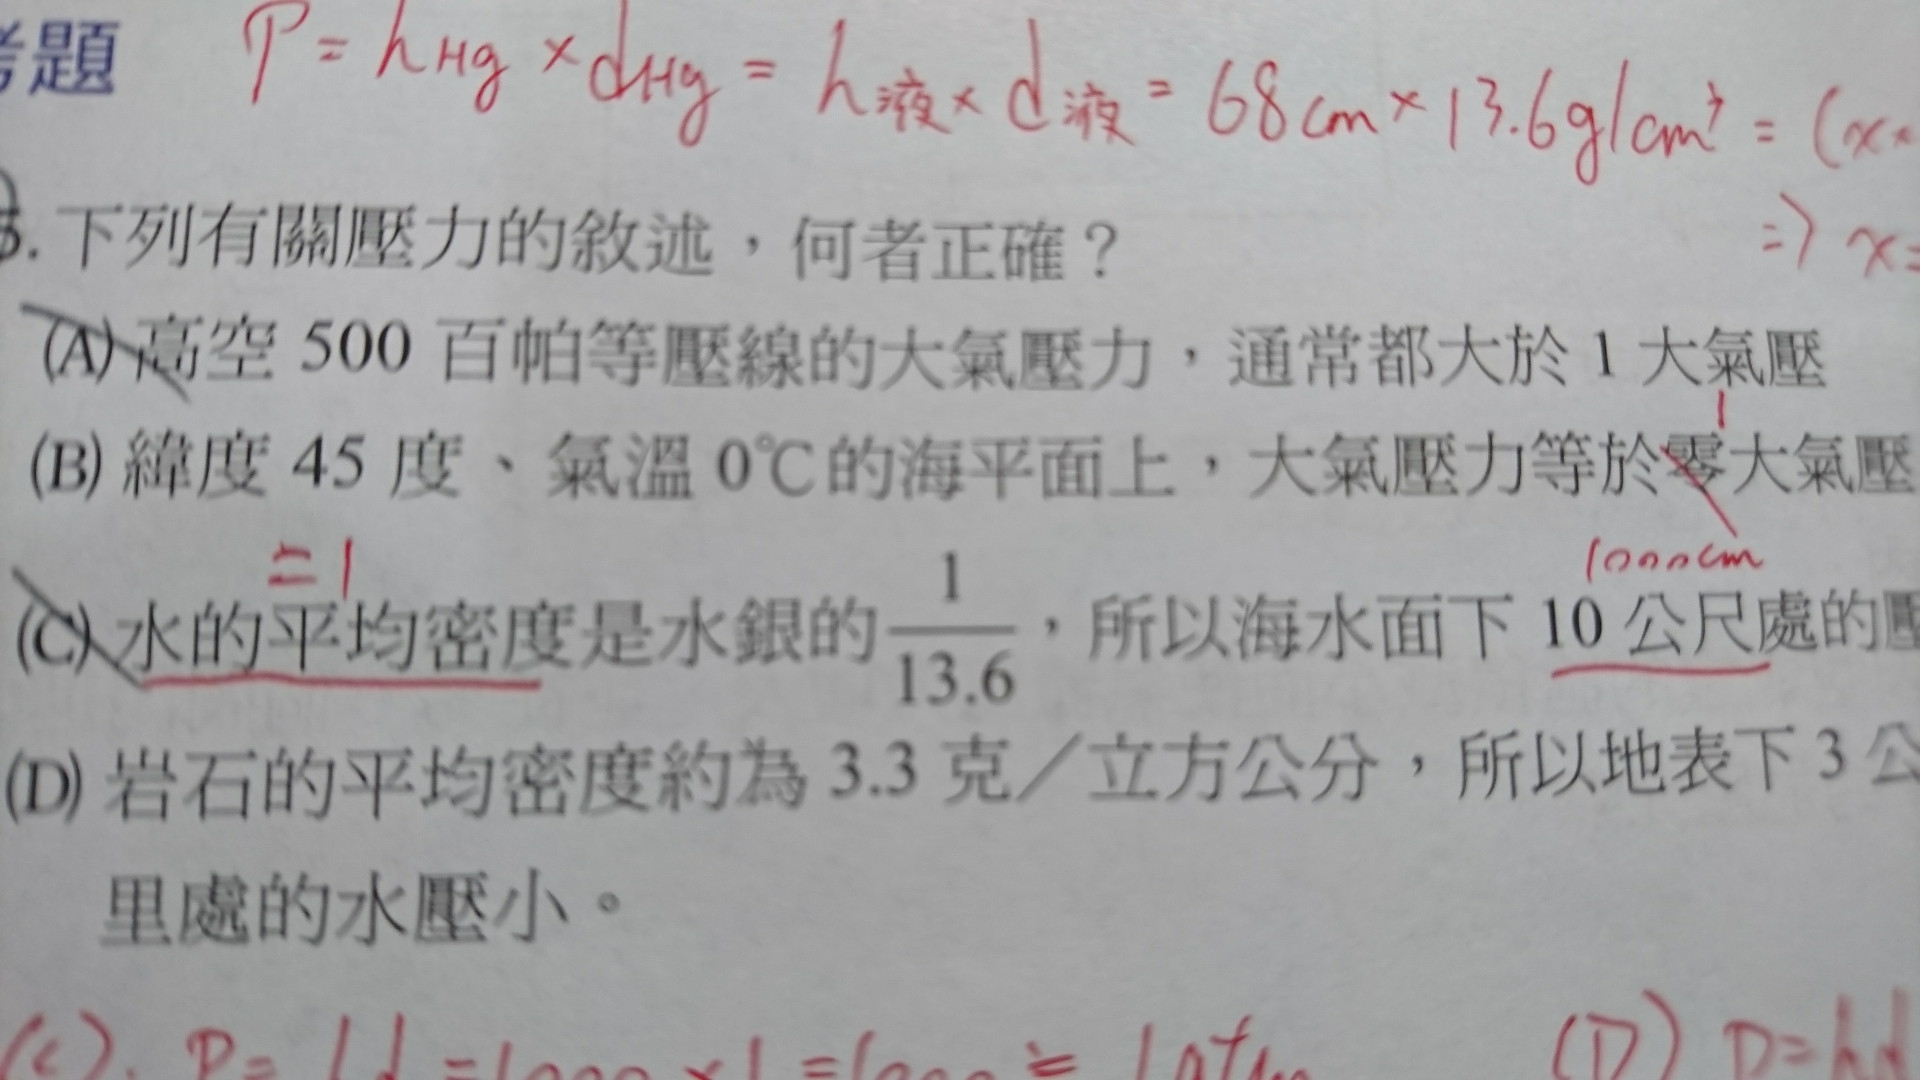 題 P = hHg × dHg = h液 × d液 = 68cm × 13.6g/cm³ = (x
⇒ x =
. 下列有關壓力的敘述,何者正確?
(A) 高空 500 百帕等壓線的大氣壓力,通常都大於 1 大氣壓
1
(B) 緯度 45 度、氣溫 0℃的海平面上,大氣壓力等於零大氣壓
=1 1000cm
(C) 水的平均密度是水銀的 1/13.6,所以海水面下 10 公尺處的壓
(D) 岩石的平均密度約為 3.3 克/立方公分,所以地表下 3 公
里處的水壓小。
(C). P = hd = 1000 × 1 = 1000 ≒ 1atm (D) P=hd